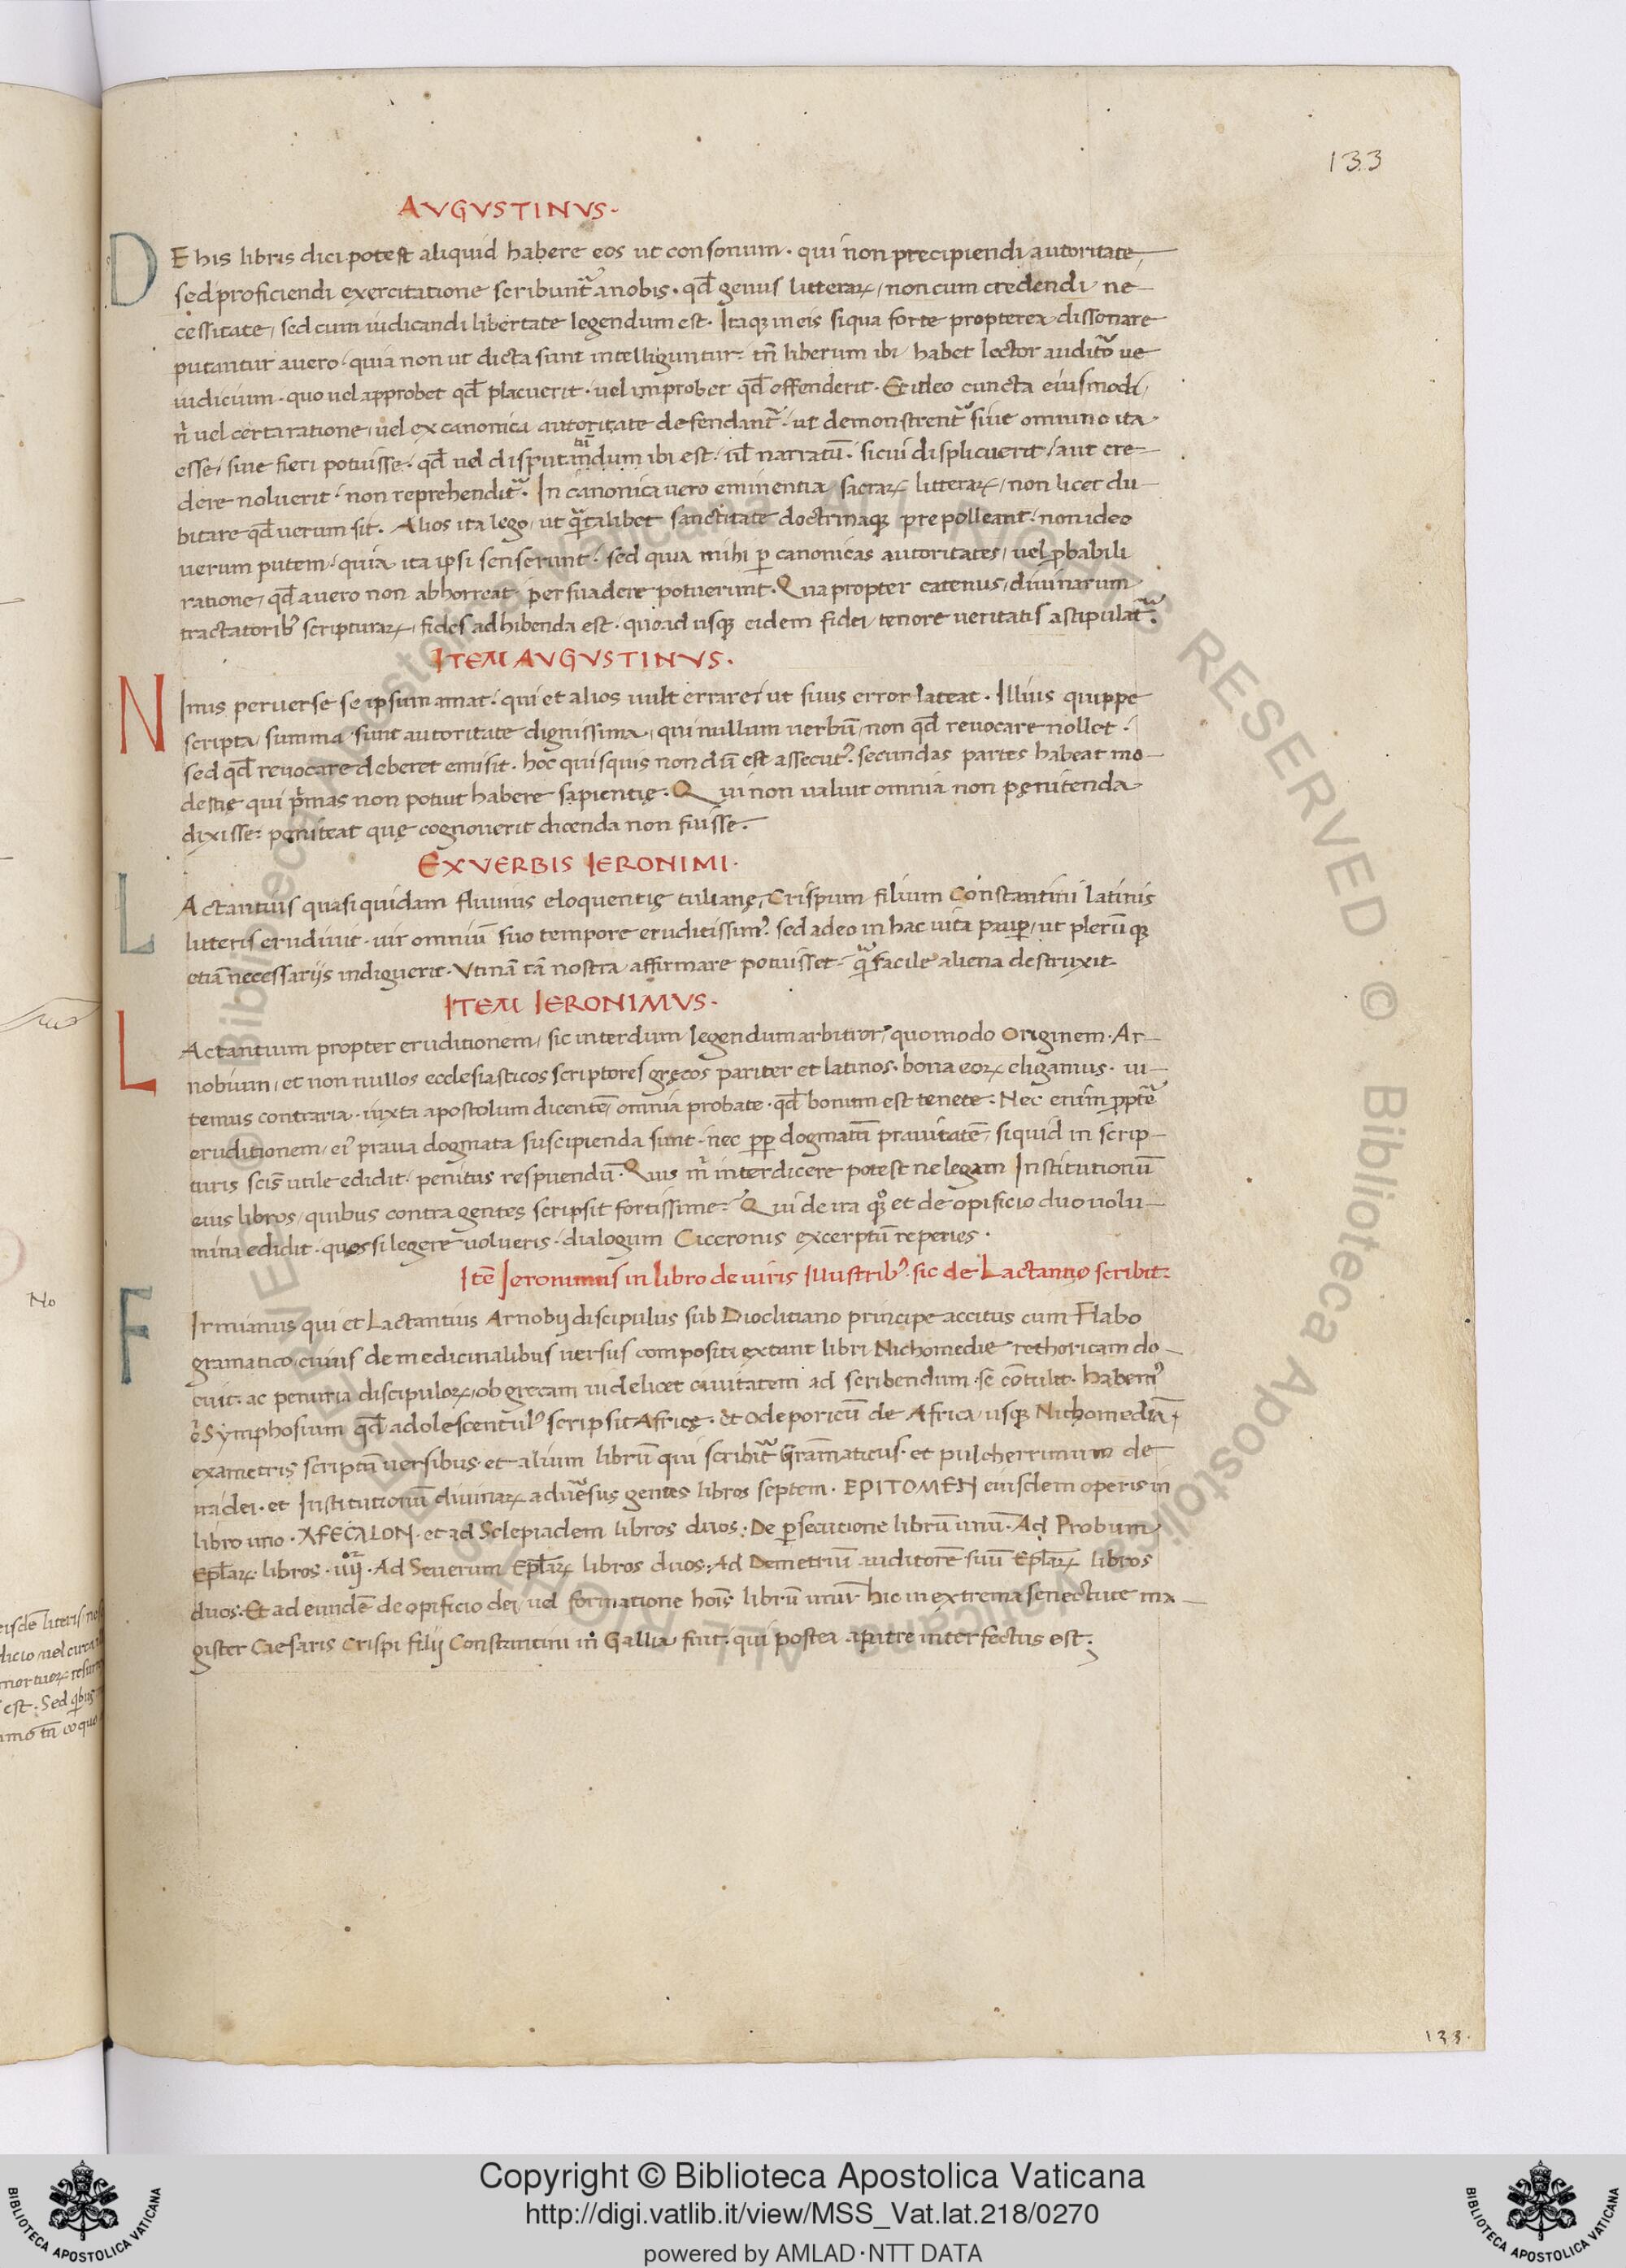 133
AVGVSTINVS.
DE his libris dici potest aliquid habere eos ut consonum. qui non precipiendi autoritate,
sed proficiendi exercitatione scribunt᷑ a nobis. qd̄ genus litteraꝝ, non cum credendi ne-
cessitate, sed cum iudicandi libertate legendum est. Itaqꝫ in eis siqua forte propterea dissonare
putantur a uero. quia non ut dicta sunt intelliguntur: tn̄ liberum ibi habet lector auditor ue
iudicium. quo uel approbet qd̄ placuerit. uel improbet qd̄ offenderit. Et ideo cuncta eiusmodi,
n̄ uel certa ratione, uel ex canonica autoritate defendant᷑. ut demonstrent᷑ siue omnino ita
esse, siue fieri potuisse. qd̄ uel disputandum ibi est. ul̄ narratū. sicui displicuerit, aut cre-
dere noluerit. non reprehendit᷑. In canonica uero eminentia sacraꝝ litteraꝝ, non licet du-
bitare qd̄ uerum sit. Alios ita lego, ut q̄talibet sanctitate doctrinaqꝫ prepolleant. non ideo
uerum putem. quia ita ipsi senserunt. sed quia mihi ꝑ canonicas autoritates, uel ꝓbabili
ratione, qd̄ a uero non abhorreat persuadere potuerunt. Quapropter eatenus, diuinarum
tractatoribꝰ scripturaꝝ, fides adhibenda est. quoad usqꝫ eidem fidei, tenore ueritatis astipulat᷑.
ITEM AVGVSTINVS.
NImis peruerse se ipsum amat. qui et alios uult errare, ut suus error lateat. Illius quippe
scripta, summa sunt autoritate dignissima, qui nullum uerbū, non qd̄ reuocare nollet.
sed qd̄ reuocare deberet emisit. hoc quisquis non dū est assecutꝰ. secundas partes habeat mo-
destię qui p̄mas non potuit habere sapientię. Qui non ualuit omnia non pęnitenda
dixisse: pęniteat quę cognouerit dicenda non fuisse.
EX VERBIS IERONIMI.
LActantius quasi quidam fluuius eloquentię tulianę, Crispum filium Constantini latinis
litteris erudiuit. uir omniū suo tempore eruditissimꝰ. sed adeo in hac uita pauꝑ, ut plerūqꝫ
etiā necessarijs indiguerit. Vtinā tā nostra affirmare potuisset. q̄ facile aliena destruxit.
ITEM IERONIMVS.
LActantium propter eruditionem, sic interdum legendum arbitror. quomodo Originem. Ar-
nobium, et non nullos ecclesiasticos scriptores gręcos pariter et latinos. bona eoꝝ eligamus. ui-
temus contraria. iuxta apostolum dicentē, omnia probate. qd̄ bonum est tenete. Nec enim ꝓpt᷑
eruditionem, eiꝰ praua dogmata suscipienda sunt. nec ꝓp dogmatū prauitatē, siquid in scrip-
turis scīs utile edidit. penitus respuendū. Quis m̄ interdicere potest ne legam Institutionū
eius libros, quibus contra gentes scripsit fortissime. Qui de ira qꝫ et de opificio duo uolu-
mina edidit. quos si legere uolueris. dialogum Ciceronis excerptū reperies.
Itē Ieronimus in Libro de uiris Illustribꝰ. sic de Lactantio scribit.
FIrmianus qui et Lactantius Arnobij discipulus sub Dioclitiano principe accitus cum Flabo
gramatico, cuius de medicinalibus uersus compositi extant libri Nichomedie rethoricam do-
cuit. ac penuria discipuloꝝ, ob grecam uidelicet ciuitatem ad scribendum se cōtulit. habemꝰ
eꝰ Symphosium qd̄ adolescentulꝰ scripsit Africę. et Odeporicū de Africa, usqꝫ Nichomediā,
exametris scriptū uersibus. et alium librū qui scribit᷑ Grāmaticus. et pulcherrimum de
ira dei. et Institutionū diuinaꝝ aduersus gentes libros septem. EPITOMEN eiusdem operis in
libro uno. ΛFEĊALON. et ad Sclepiadem libros duos: De ꝑsecutione librū unū. Ad Probum
Epl̄aꝝ. libros. iiij. Ad Seuerum Epl̄aꝝ libros duos: Ad Demetriū auditorē suū Epl̄aꝝ libros
duos. Et ad eundē de opificio dei, uel formatione hoīs librū unū. hic in extrema senectute ma-
gister Caesaris Crispi filij Constantini in Gallia fuit. qui postea a patre interfectus est.
133
No
eisdē literis
est. Sed
Copyright © Biblioteca Apostolica Vaticana
http://digi.vatlib.it/view/MSS_Vat.lat.218/0270
powered by AMLAD·NTT DATA
BIBLIOTECA APOSTOLICA VATICANA
BIBLIOTECA APOSTOLICA VATICANA